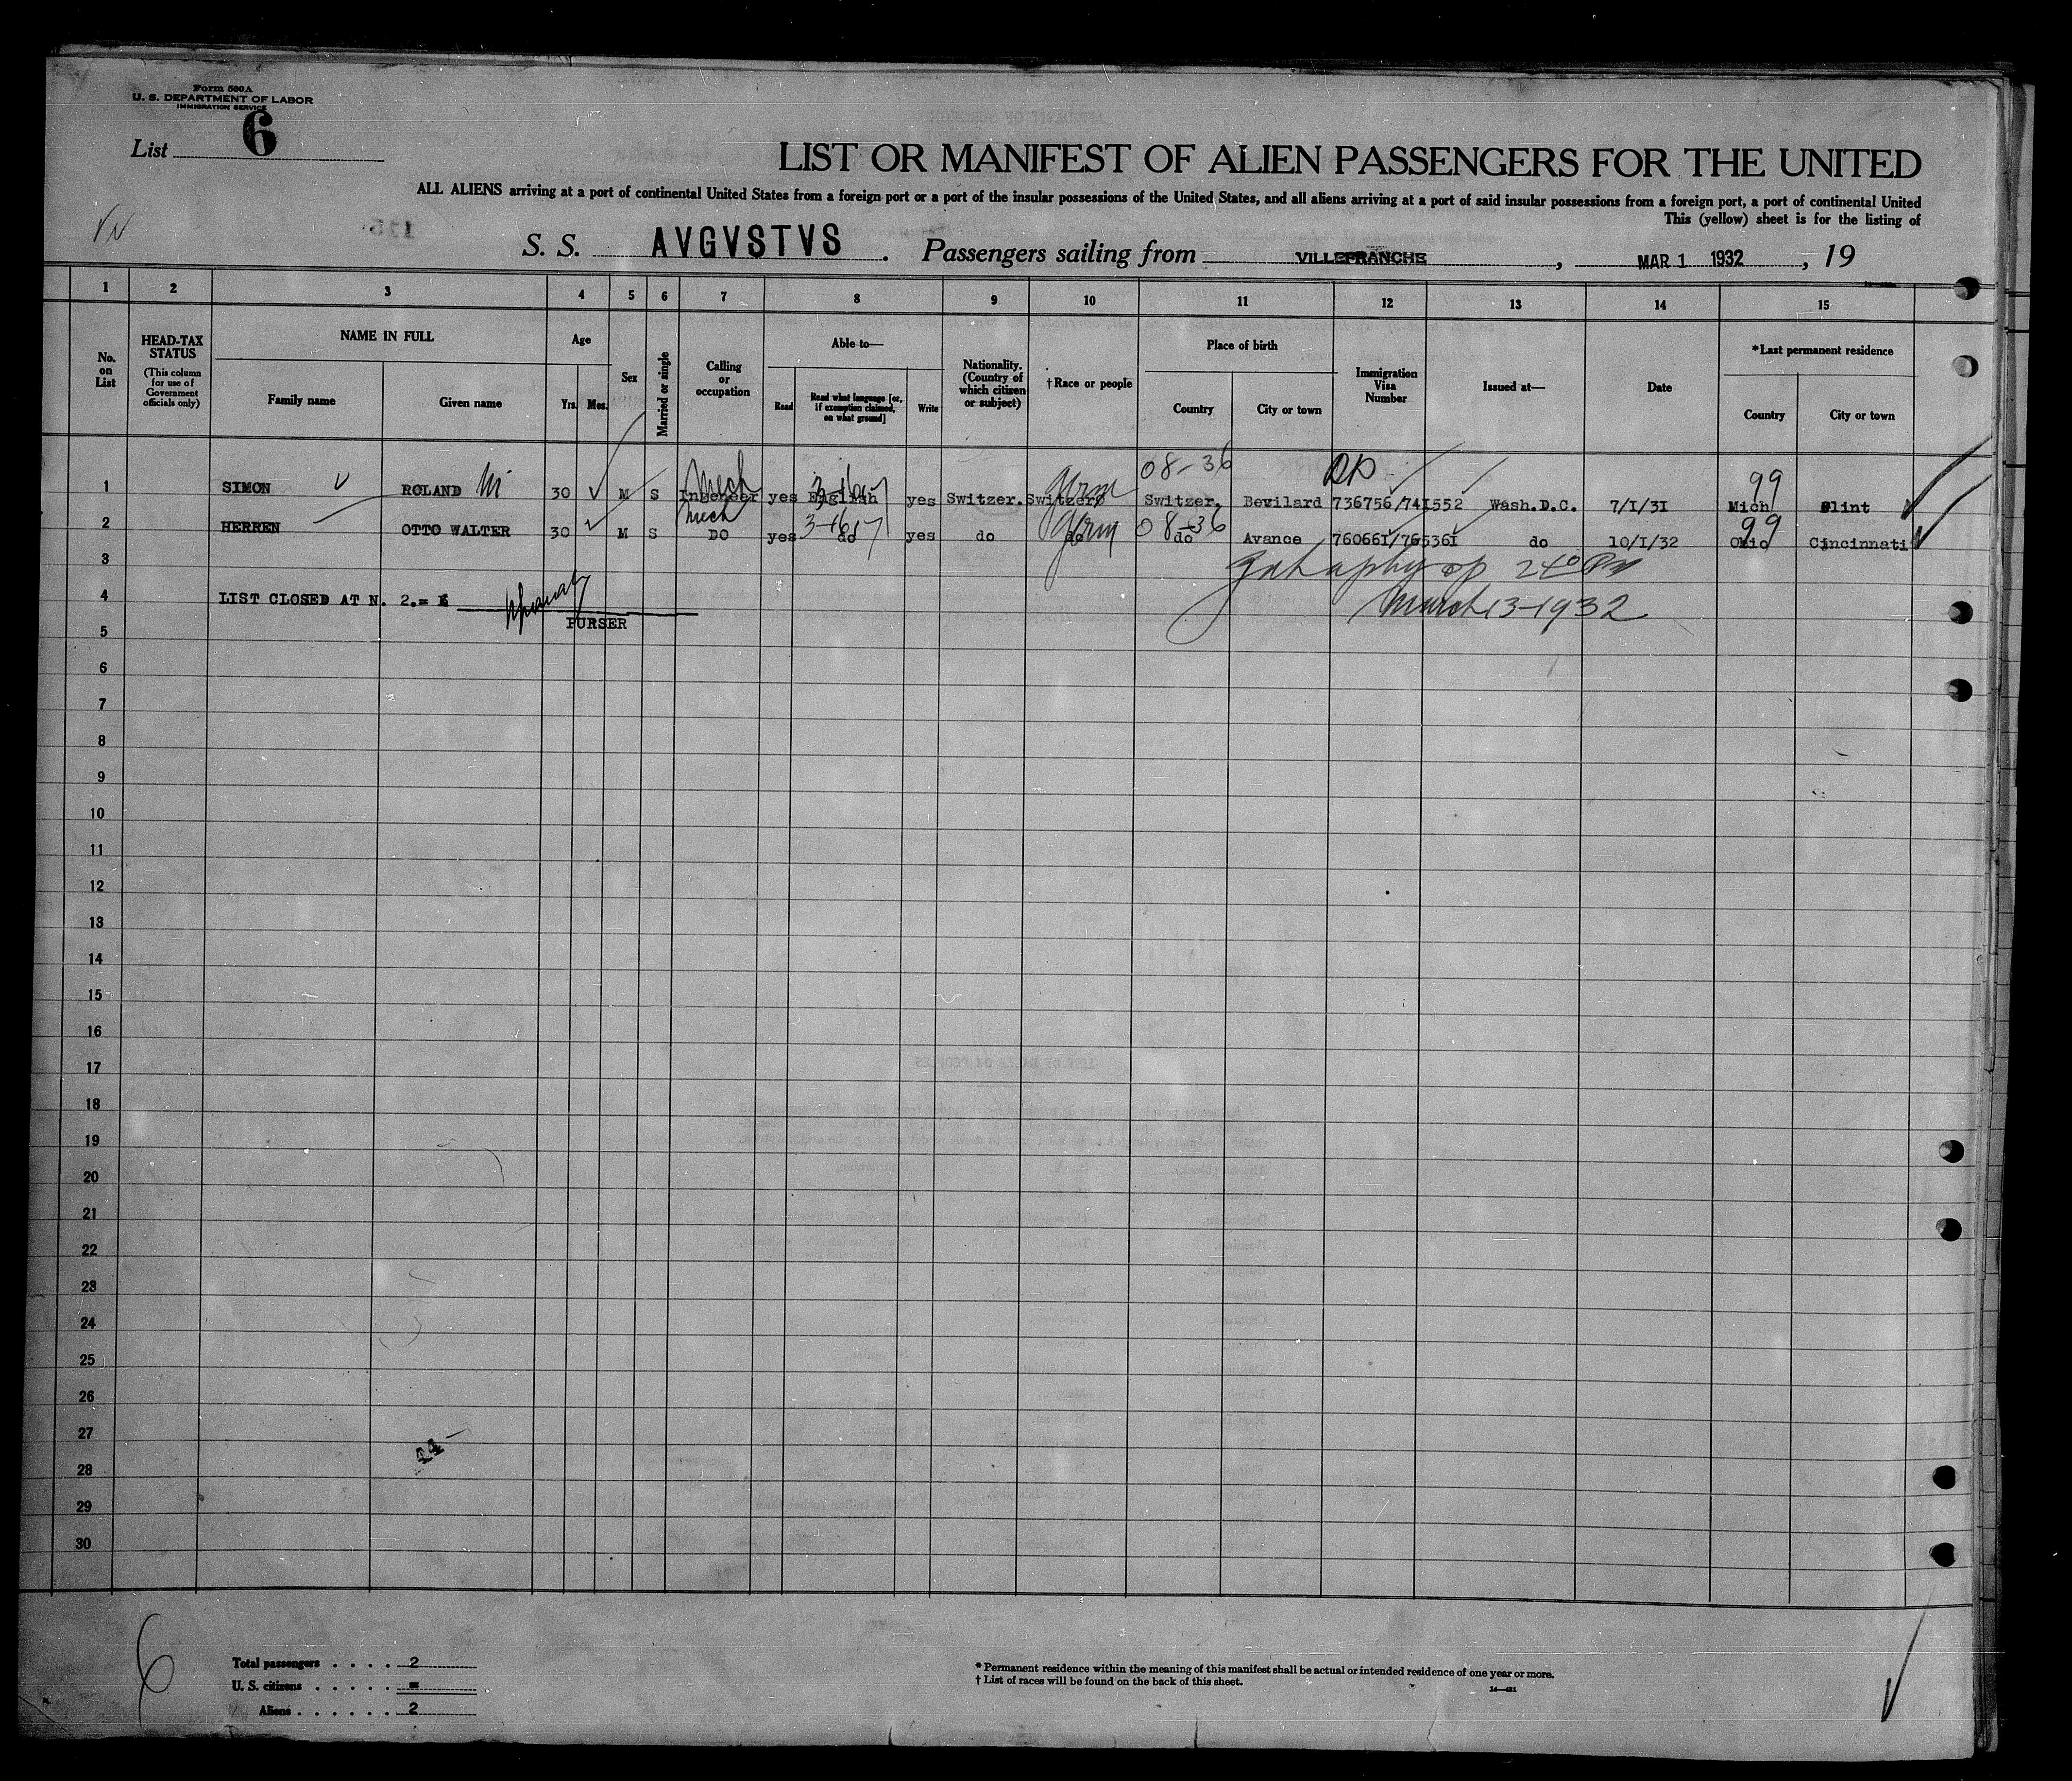 Form 500A
U. S. DEPARTMENT OF LABOR
IMMIGRATION SERVICE
List 6
LIST OR MANIFEST OF ALIEN PASSENGERS FOR THE UNITED
ALL ALIENS arriving at a port of continental United States from a foreign port or a port of the insular possessions of the United States, and all aliens arriving at a port of said insular possessions from a foreign port, a port of continental United
This (yellow) sheet is for the listing of
S. S. AVGVSTVS. Passengers sailing from VILLEFRANCHE, MAR 1 1932, 19
1 2 3 4 5 6 7 8 9 10 11 12 13 14 15
No. on List
HEAD-TAX STATUS
(This column for use of Government officials only)
NAME IN FULL
Family name
Given name
Age
Yrs.
Mos.
Sex
Married or single
Calling or occupation
Able to—
Read
Read what language [or, if exemption claimed, on what ground]
Write
Nationality. (Country of which citizen or subject)
†Race or people
Place of birth
Country
City or town
Immigration Visa Number
Issued at—
Date
*Last permanent residence
Country
City or town
08-36
99
1 SIMON ROLAND 30 M S Mech Ingeneer yes English yes Switzer. Switzer Germ Switzer. Bevilard 736756/741552 Wash.D.C. 7/1/31 Mich Flint
mech 08-36 99
2 HERREN OTTO WALTER 30 M S DO yes do yes do do Germ do Avance 760661/765361 do 10/1/32 Ohio Cincinnati
3
March 13-1932
4 LIST CLOSED AT N. 2.=
PURSER
5
6
7
8
9
10
11
12
13
14
15
16
17
18
19
20
21
22
23
24
25
26
27
28
29
30
44-
6
Total passengers . . . . 2
U. S. citizens . . . . . =
Aliens . . . . . . 2
* Permanent residence within the meaning of this manifest shall be actual or intended residence of one year or more.
† List of races will be found on the back of this sheet.